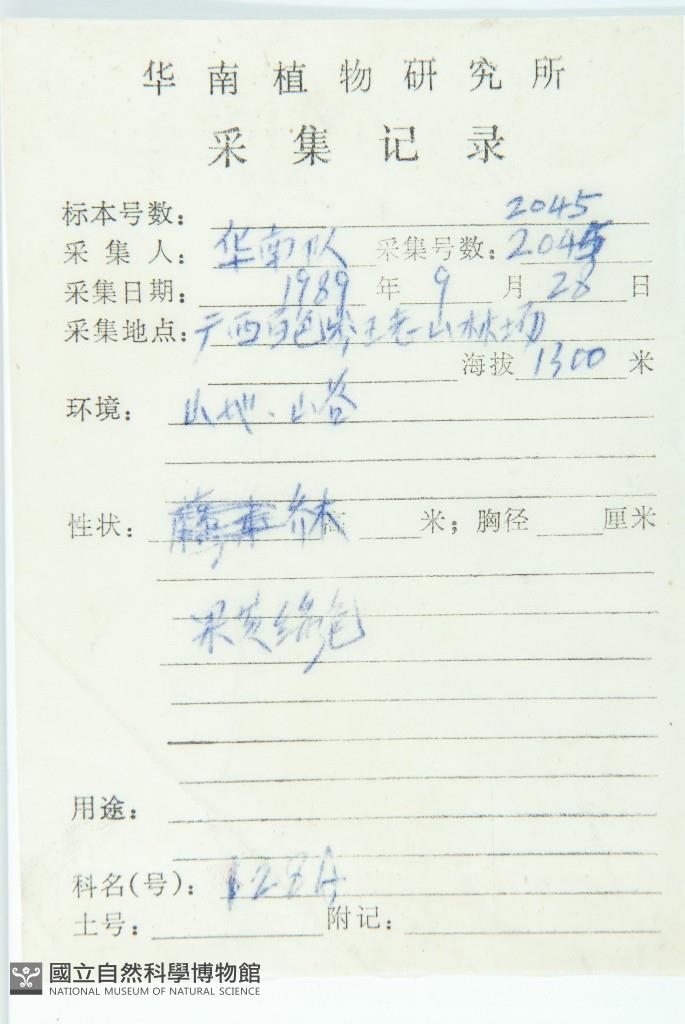 华南植物研究所
采集记录
标本号数: 2045
采集人: 华南队 采集号数: 2045
采集日期: 1989年9月28日
采集地点: 广西百色岑王老山林场
海拔1300米
环境: 山地、山谷
性状: 乔木 高 米; 胸径 厘米
果黄绿色
用途:
科名(号): 128A
土号: 附记:
國立自然科學博物館
NATIONAL MUSEUM OF NATURAL SCIENCE